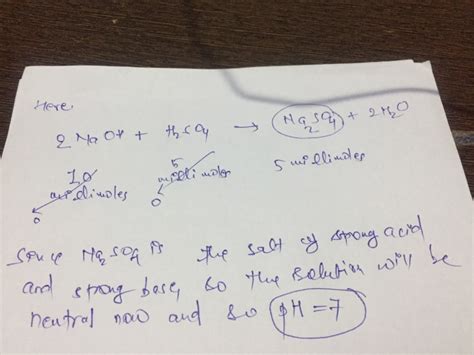 Here,
2 NaOH + H2SO4 → Na2SO4 + 2H2O
10 millimoles 5 millimoles 5 millimoles
0 0
Since Na2SO4 is the salt of strong acid
and strong base, so the solution will be
neutral now and so pH = 7